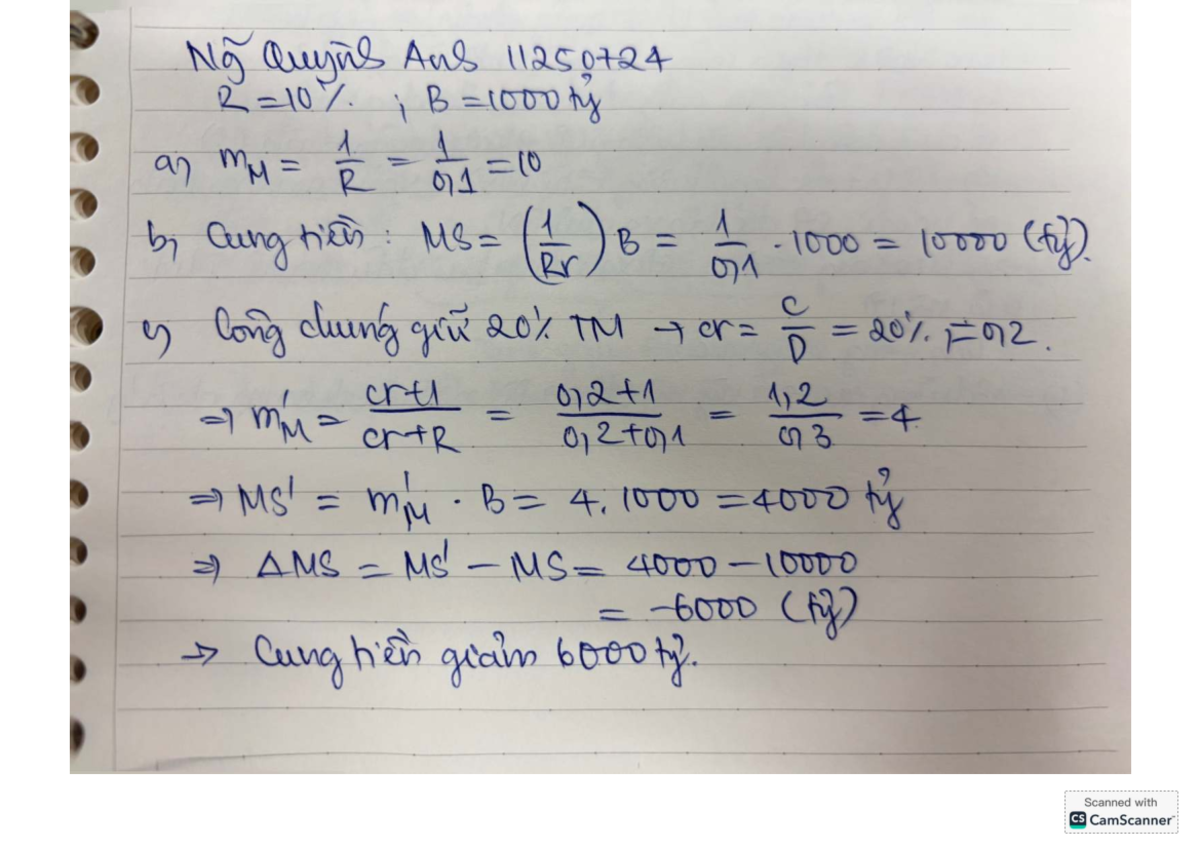 Ng̃ Quỳnh Anh 11250724
R = 10% ; B = 1000 tỷ
a, mM = 1/R = 1/0,1 = 10
b, Cung tiền : MS = (1/Rr) B = 1/0,1 . 1000 = 10000 (tỷ).
c, Công chúng giữ 20% TM → cr = C/D = 20% = 0,2.
⇒ m'M = cr+1/cr+R = 0,2+1/0,2+0,1 = 1,2/0,3 = 4
⇒ MS' = m'M . B = 4.1000 = 4000 tỷ
⇒ ΔMS = MS' − MS = 4000 − 10000
= −6000 (tỷ)
→ Cung tiền giảm 6000 tỷ.
Scanned with
CS CamScanner